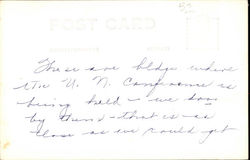 52
POST CARD
These are bldgs where
the U. N. Conference is
being held - we
by them - that is - as
close as we could get